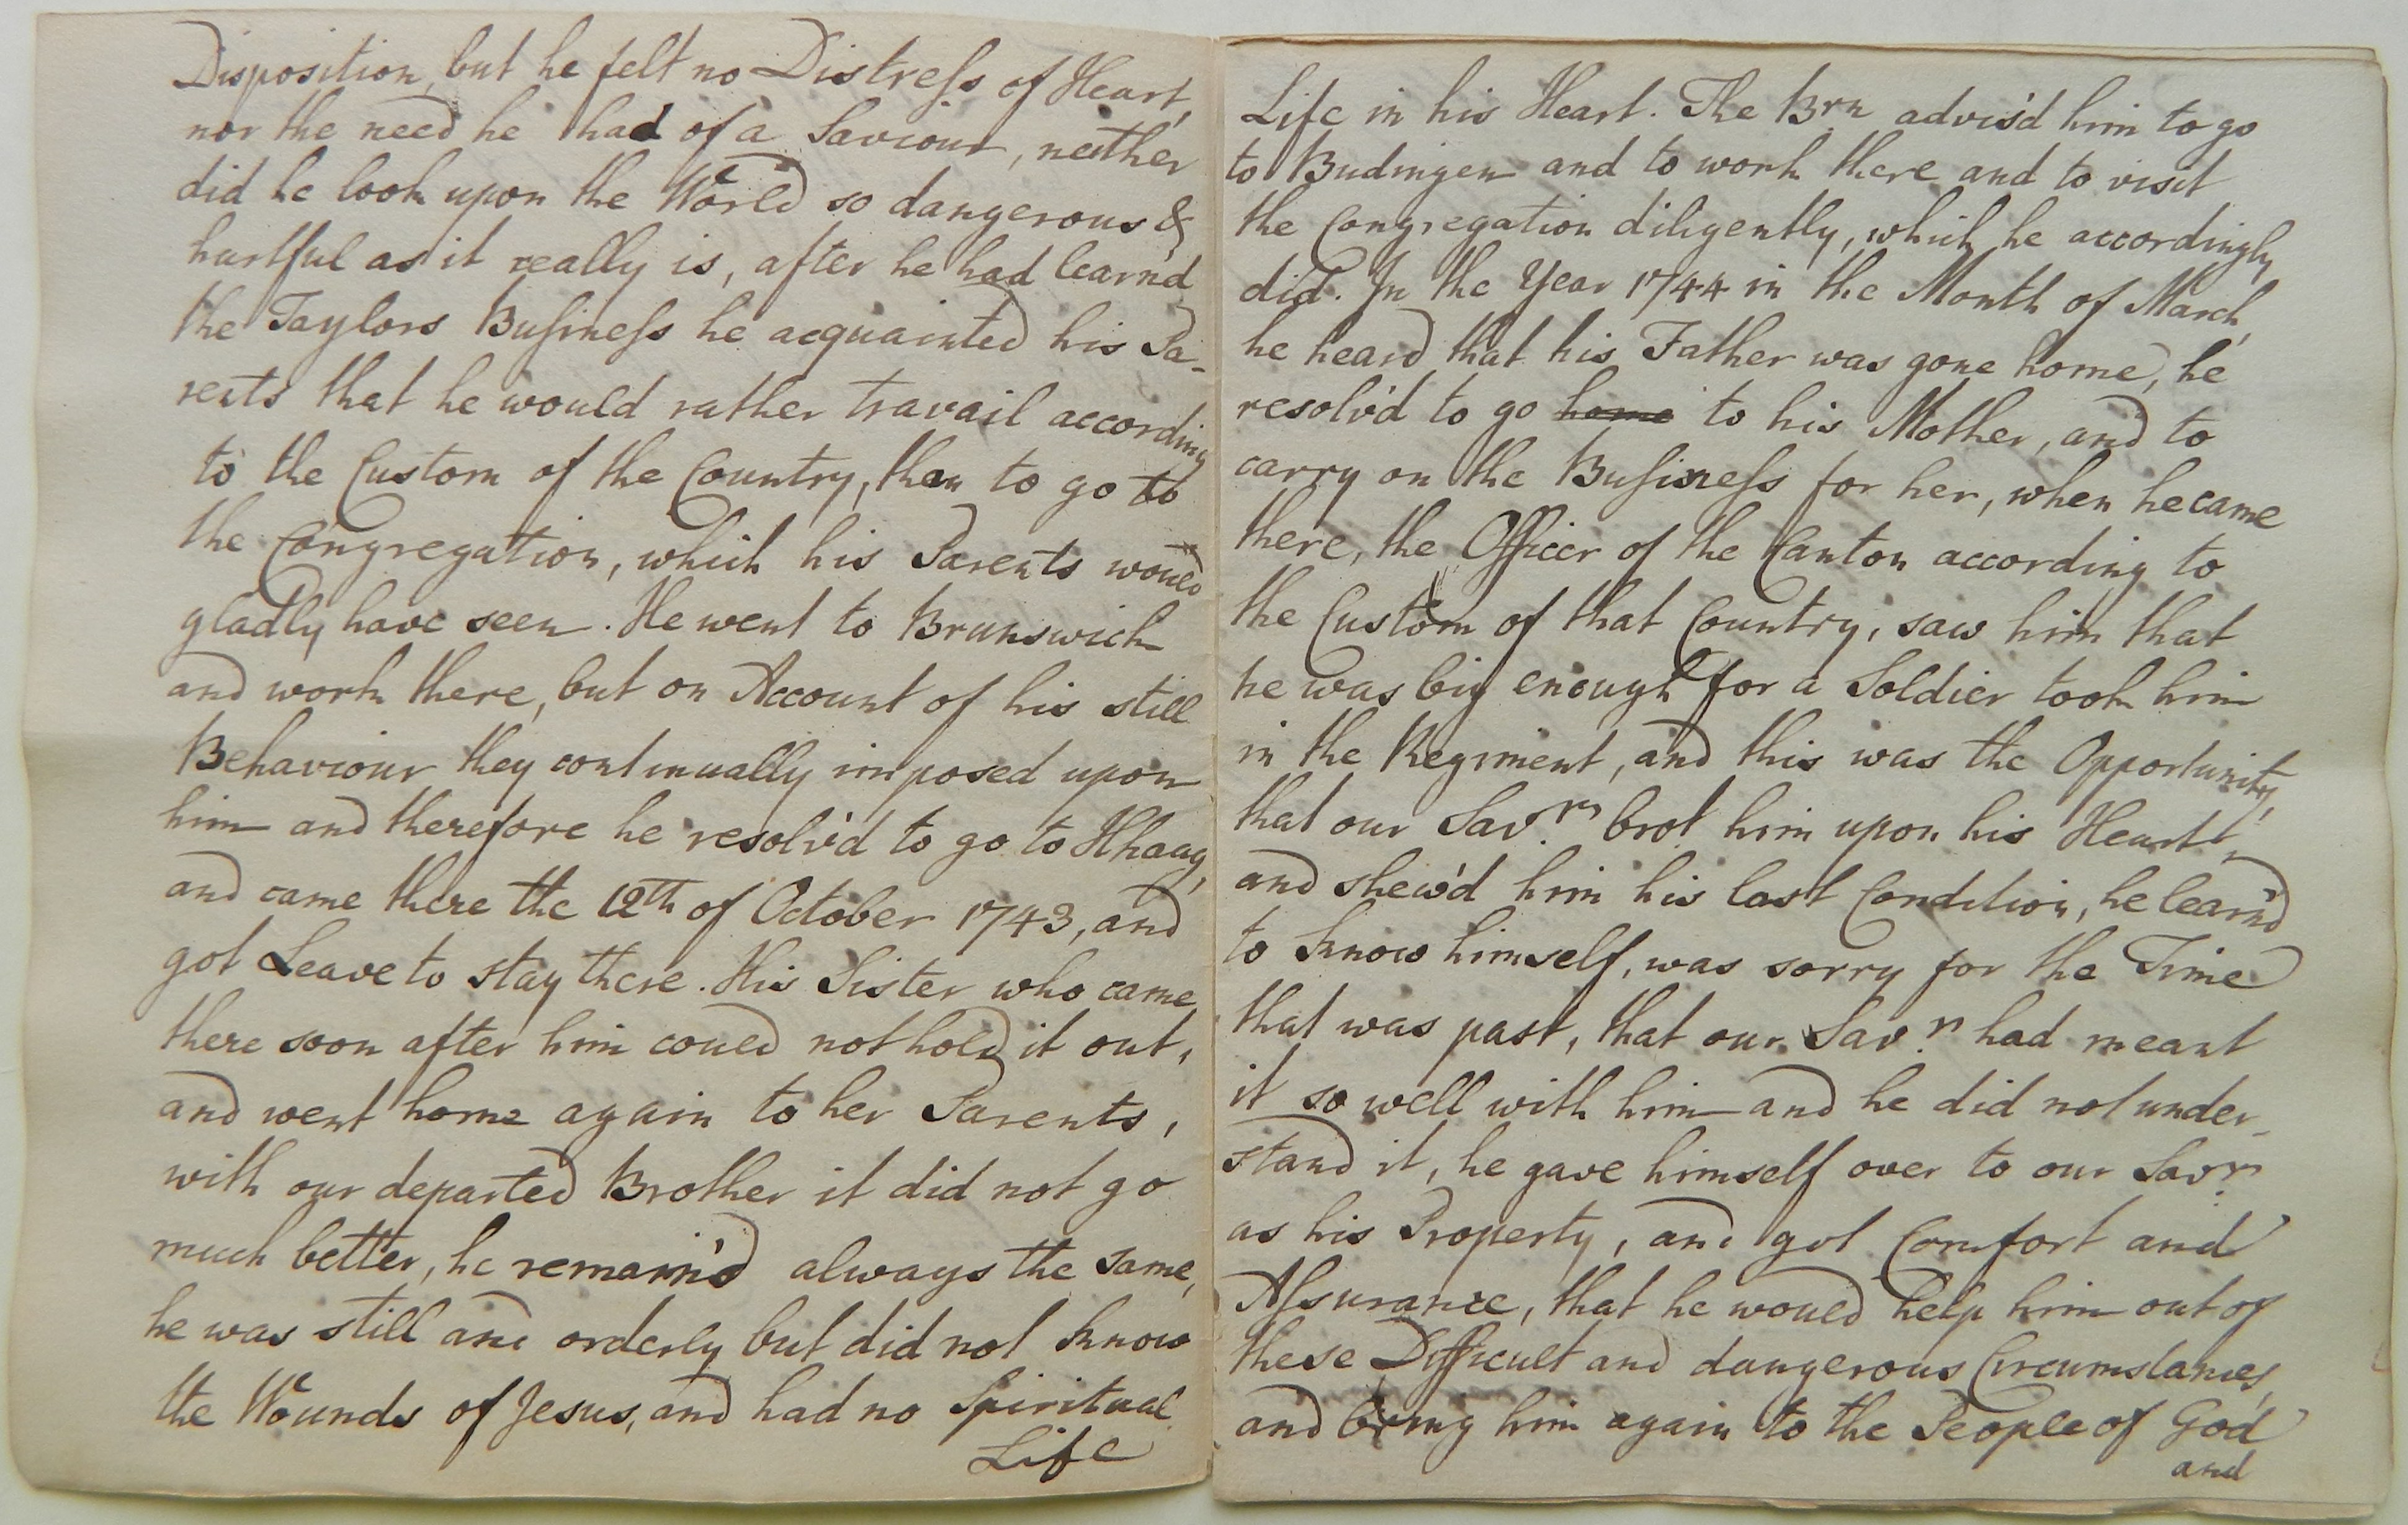 Disposition, but he felt no Distreſs of Heart,
nor the need he had of a Saviour, neither
did he look upon the World so dangerous &
hurtful as it really is, after he had learn'd
the Taylors Buſineſs he acquainted his Pa-
rents that he would rather travail according
to the Custom of the Country, than to go to
the Congregation, which his Parents would
gladly have seen. He went to Brunswick
and work there, but on Account of his still
Behaviour they continually imposed upon
him and therefore he resolv'd to go to Hhaag,
and came there the 12th of October 1743, and
got Leave to stay there. His Sister who came
there soon after him could not hold it out,
and went home again to her Parents,
with our departed Brother it did not go
much better, he remain'd always the same,
he was still and orderly but did not know
the Wounds of Jesus, and had no Spiritual
Life
Life in his Heart. The Brn advis'd him to go
to Budingen and to work there and to visit
the Congregation diligently, which he accordingly
did. In the Year 1744 in the Month of March,
he heard that his Father was gone home, he
resolv'd to go home to his Mother, and to
carry on the Buſineſs for her, when he came
there, the Officer of the Canton according to
the Custom of that Country, saw him that
he was big enough for a Soldier took him
in the Regiment, and this was the Opportunity,
that our Savr. brot him upon his Heart,
and shew'd him his lost Condition, he learn'd
to know himself, was sorry for the Time
that was past, that our Savr. had meant
it so well with him and he did not under-
stand it, he gave himself over to our Savr.
as his Property, and got Comfort and
Aſsurance, that he would help him out of
these Difficult and dangerous Circumstances,
and bring him again to the People of God
and